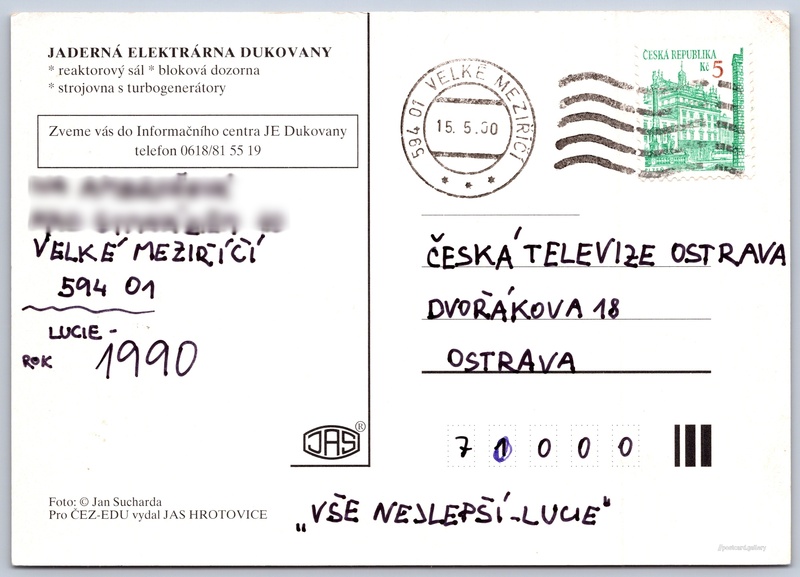 JADERNÁ ELEKTRÁRNA DUKOVANY
* reaktorový sál * bloková dozorna
* strojovna s turbogenerátory
Zveme vás do Informačního centra JE Dukovany
telefon 0618/81 55 19
VELKÉ MEZIŘÍČÍ
594 01
LUCIE -
ROK 1990
Foto: © Jan Sucharda
Pro ČEZ-EDU vydal JAS HROTOVICE
JAS®
594 01 VELKÉ MEZIŘÍČÍ
15. 5. 00
ČESKÁ REPUBLIKA
Kč 5
ČESKÁ TELEVIZE OSTRAVA
DVOŘÁKOVA 18
OSTRAVA
7 1 0 0 0 0
„VŠE NEJLEPŠÍ-LUCIE"